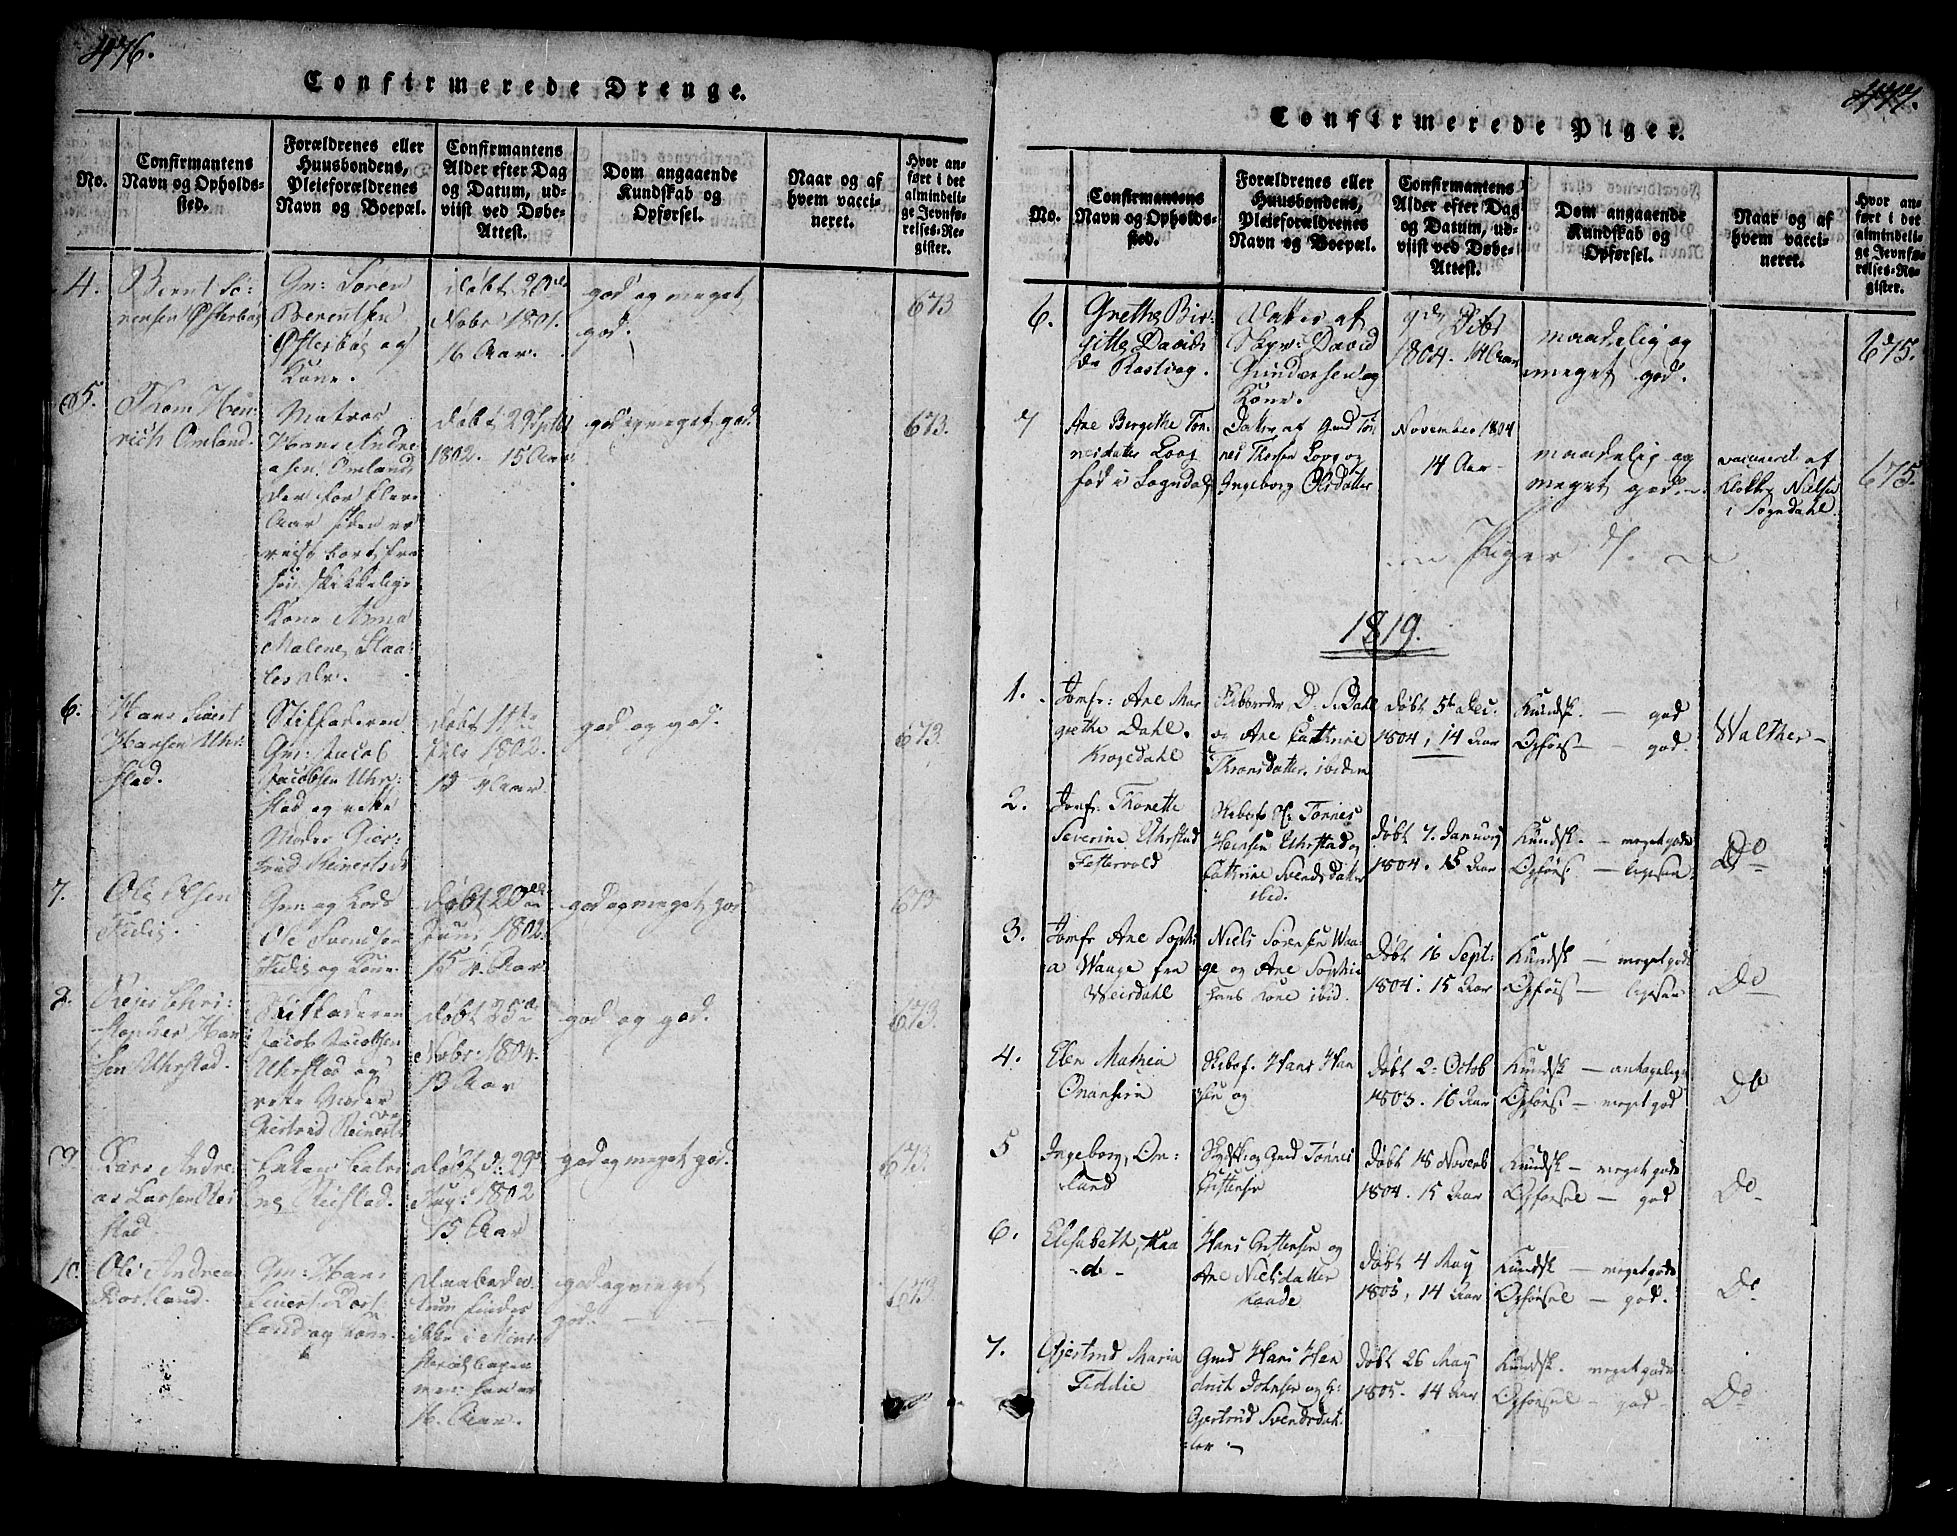 476.
Confirmerede Drenge.
No.
Confirmantens
Navn og Opholds-
sted.
Forældrenes eller
Huusbondens,
Pleieforældrenes
Navn og Boepæl.
Confirmantens
Alder efter Dag
og Datum, ud-
viist ved Døbe-
Attest.
Dom angaaende
Kundskab og
Opførsel.
Naar og af
hvem vacci-
neret.
Hvor an-
ført i det
almindeli-
ge Jevnfø-
relses-Re-
gister.
4.
Bernt Sö-
rensen Østerbøe
Gm: Sören
Berentsen
Østerbøe og
Kone.
døbt 20de
Novbr 1801.
16 Aar.
god og meget
god.
673
5.
Thom Hen-
rich Omland.
Matros
Hans Andre-
asen Omland
der for flere
Aar siden er
reist bort fra
sin skikkelige
Kone Anna
Malene
døbt 29 Septbr
1802. 15 Aar
god og meget god.
673.
6.
Hans Sivert
Hansen Uhr-
stad.
Stiffaderen
Gm: Jacob
Jacobsen Uhr-
stad og rette
Moder Gier-
trud Reinertsdr
døbt 11te
1802.
15 Aar.
god og god.
673.
7.
Ole Olsen
Fidie.
Gm og
Ole Svendsen
Fidie og Kone
døbt 20de
Juni 1802.
15 Aar.
god og meget god
673
8.
Christopher Han-
sen Uhrstad.
Stiffaderen
Jacob Jacobsen
Uhrstad og
rette Moder
Giertrud Reinerts
døbt 25de
Novbr: 1804.
13 Aar
god og god.
673.
9.
Lars Andre-
as Larsen Rei
stad.
Enken
Reistad.
døbt d: 29de
Aug: 1802
15 Aar
god og meget god.
673.
10.
Ole Andreas
Rortland.
Gm: Hans
Sivert Rort-
land og Kone.
Daabsda-
tum findes
ikke i Mini-
sterialbogen
men han er
16 Aar.
god og meget
god.
673.
477.
Confirmerede Piger.
No.
Confirmantens
Navn og Opholds-
sted.
Forældrenes eller
Huusbondens,
Pleieforældrenes
Navn og Boepæl.
Confirmantens
Alder efter Dag
og Datum, ud-
viist ved Døbe-
Attest.
Dom angaaende
Kundskab og
Opførsel.
Naar og af
hvem vacci-
neret.
Hvor an-
ført i det
almindeli-
ge Jevnfø-
relses-Re-
gister.
6.
Grethe Bir-
gitte Davids
dr Rostvog.
Datter af
Skpr: David
Gundersen og
Kone.
9de Febr
1804. 14 Aar
maadelig og
meget god.
675.
7
Ane Bergithe Tön-
nesdatter Loog
fød i Sogndal
Datter af Gmd Tön
nes Thorsen Loog og
Ingeborg Olsdatter
November 1804
14 Aar
maadelig og
meget god.
vaccineret af
Klokker Nielsen
i Sogndahl.
675.
Piger 7.
1819.
1.
Jomfr: Ane Mar
grethe Dahl.
Krogedahl
D. S. Dahl
og Ane Cathrine
Thronsdatter. ibidem
Döbt 5t Dec.
1804, 14 Aar
Kundsk. — god
Opförs — god.
Walther —
2.
Jomfr: Thonette
Severine Uhrstad
Fettervold
Skebsf Hr Tønnes
Heinsen Uhrstad og
Cathrine Svendsdatter
ibid.
Döbt 7. January
1804. 15 Aar
Kundsk. — meget godt
Opförs — ligesaa
Do
3.
Jomfr Ane Sophi
a Waage fra
Weisdahl
Niels Sörensen Waa-
ge og Ane Sophia
hans kone ibid.
Döbt 16 Sept:
1804. 15 Aar
Kundsk — meget godt
Opförs — ligesaa
Do
4.
Elen Mathia
Onansein
Skibsf. Hans Han
sen og
Döbt 2= Octob
1803. 16 Aar
Kundsk — antagelige
Opförs — meget god
Do
5
Ingeborg, Om-
land
og Gmd Tønnes
Cristensen
Döbt 18 Novemb
1804. 15 Aar
Kundsk — meget godt
Opförsel — god
Do
6.
Elisabeth, Kaa
-d-
Hans Cristensen og
Ane Nielsdatter
Kaade
Döbt 4 May
1805, 14 Aar
Kundsk — meget godt
Opförsel — god.
Do
7.
Gjertrud Maria
Fiddie
Gmd Hans Hen
drich Johnsen og
Gjertrud Svendsdat-
ter —
Döbt 26 May
1805. 14 Aar
Kundsk. meget godt
Opförsel — god —
Do